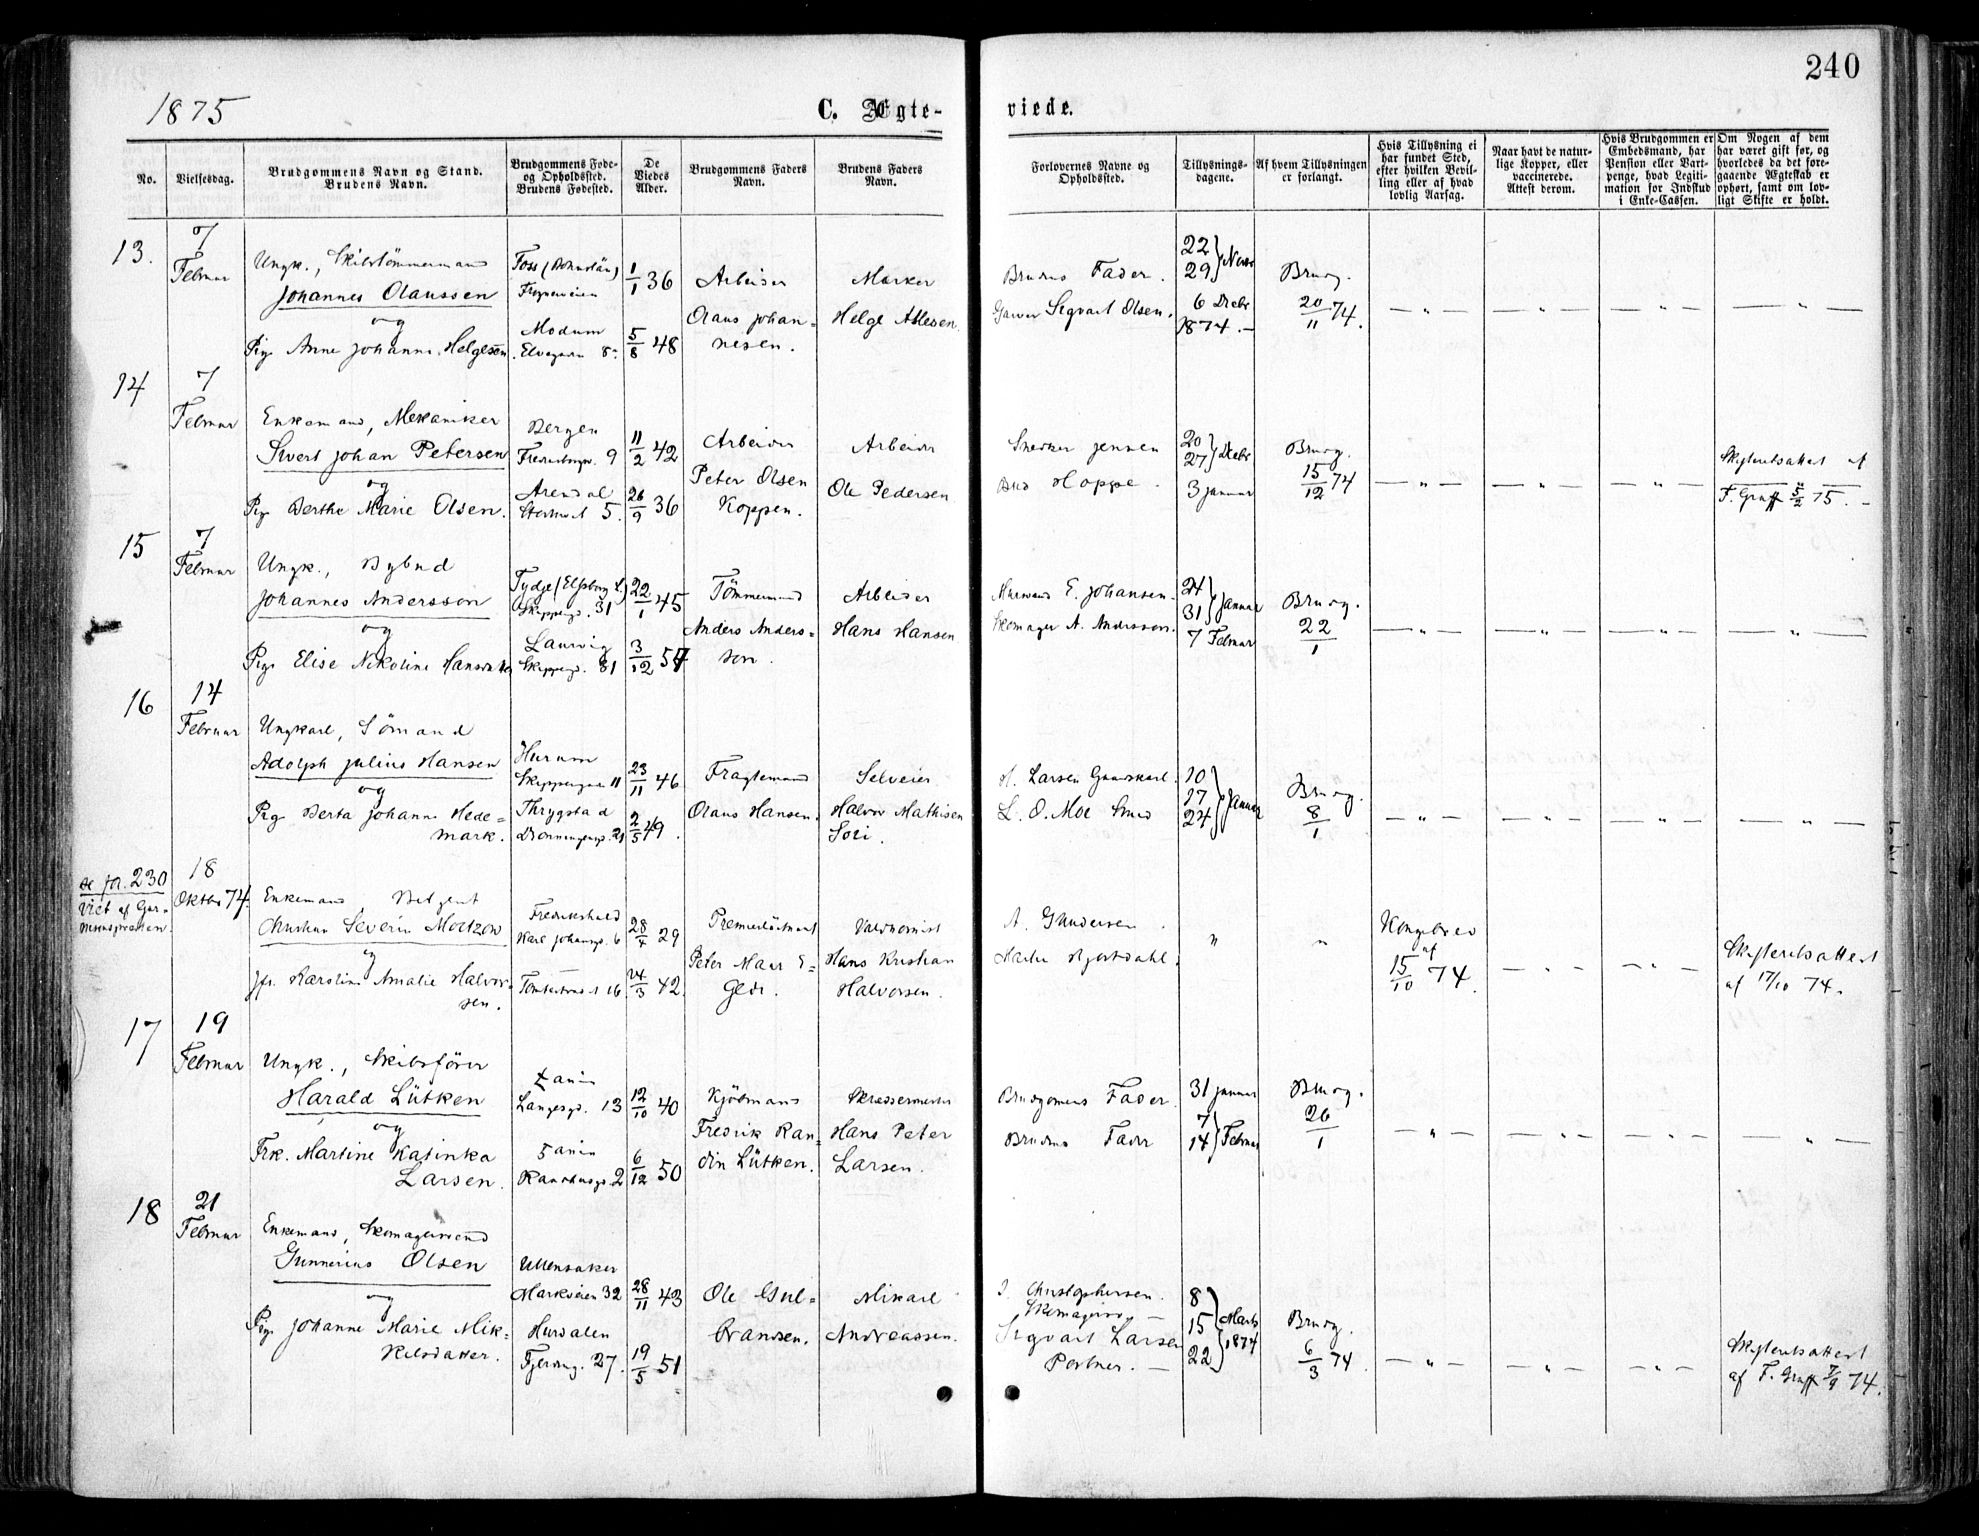 240
1875
C. Ægte-
viede.
No.
Vielsesdag.
Brudgommens Navn og Stand.
Brudens Navn.
Brudgommens Føde-
og Opholdssted.
Brudens Fødested.
De
Viedes
Alder.
Brudgommens Faders
Navn.
Brudens Faders
Navn.
Forlovernes Navne og
Opholdssted.
Tillysnings-
dagene.
Af hvem Tillysningen
er forlangt.
Hvis Tillysning ei
har fundet Sted,
efter hvilken Bevil-
ling eller af hvad
lovlig Aarsag.
Naar havt de natur-
lige Kopper, eller
vaccinerede.
Attest derom.
Hvis Brudgommen er
Embedsmand, har
Pension eller Vart-
penge, hvad Legiti-
mation for Indskud
i Enke-Cassen.
Om Nogen af dem
har været gift før, og
hvorledes da det fore-
gaaende Ægteskab er
ophørt, samt om lov-
ligt Skifte er holdt.
13.
7
Februar
Ungk., Skibstömmermand
Johannes Olaussen
og
Pige Anne Johanne Helgesen
Foss (Bohuslän)
Frognerveien
Modum
Elvegaden 8
1/1 36
5/8 48
Arbeider
Olaus Johan=
nesen.
Marker
Helge Atlesen
Brudens Fader.
Garver Sigvart Olsen.
22
29 } Novbr
6 Decbr
1874.
Brudg.
20/11 74.
14
7
Februar
Enkemand, Mekaniker
Sivert Johan Petersen
og
Pige Berthe Marie Olsen.
Bergen
Fredensborgv. 9
Arendal
5.
11/2 42
26/9 36
Arbeider
Peter Olsen
Koppen.
Arbeider
Ole Pedersen
Snedker Jensen
Bud Hoppe.
20
27 } Decbr
3 Januar
Brudg.
15/12 74
Skifteretsattest af
F. Graff 5/2 75.
15
7
Februar
Ungk., Bybud
Johannes Andersson
og
Pige Elise Nikoline Hansdatter
Tydje (Elfsborg L.)
Skipperg. 31
Laurvig
Skipperg. 31
22/1 45
3/12 54
Tömmermand
Anders Anders=
son.
Arbeider
Hans Hansen
Murersvend E. Johansen.
Skomager A. Andersson.
24
31 } Januar
7 Februar
Brudg.
22/1
16
14
Februar
Ungkarl, Sömand
Adolph Julius Hansen
og
Pige Berta Johanne Hede=
mark.
Hurum
Skippergaden 11
Thrygstad
Dronningensg. 21
23/11 46
2/5 49.
Fragtemand
Olaus Hansen.
Selveier
Halvor Mathisen
H. Larsen Gaardskarl.
L. O. Moe Smed
10
17
24 } Januar
Brudg.
8/1
se fol. 230
Viet af Gar=
nisonspresten.
18
Oktbr 74.
Enkemand, Betjent
Christian Severin Moltzow
og
Jfr. Karoline Amalie Halvor=
sen.
Frederikshald
Karl Johansg. 6
Tomtestræd. 16
28/4 29
24/3 42.
Premierlöitnant
Peter Maur E=
gede.
Hans Kristian
Halvorsen.
A. Gundersen.
Martin Hjertdahl.
"
"
Kongebrev
af
15/10 74.
Skifteretsattest
af 17/10 74.
17
19
Februar
Ungk., Skibsförer
Harald Lütken
og
Frk. Martine Katinka
Larsen.
Xania
Langesg. 13
Xania
Raadhusgd. 2
12/10 40
6/12 50
Kjöbmand
Fredrik Ran=
din Lütken.
Skræddermester
Hans Peter
Larsen.
Brudgomens Fader.
Brudens Fader
31 Januar
7
14 } Februar
Brudg.
26/1
18
21
Februar
Enkemand, Skomagersvend
Gunnerius Olsen
og
Pige Johanne Marie Mik=
kelsdatter.
Ullensaker
Markveien 32
Hurdalen
Fjerding. 27.
28/11 43
19/5 51
Ole Gul=
brandsen.
Mikael
Andreassen.
J. Christophersen.
Skomagersv.
Sigvart Larsen
Portner.
8
15
22 } Marts
1874
Brudg.
6/3 74.
Skifteretsattest
af F. Graff 7/9 74.